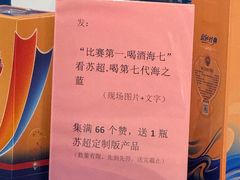 发:
“比赛第一.喝酒海七”
看苏超.喝第七代海之
蓝
(现场图片+文字)
集满 66 个赞，送 1 瓶
苏超定制版产品
(数量有限，先到先得，送完截止)